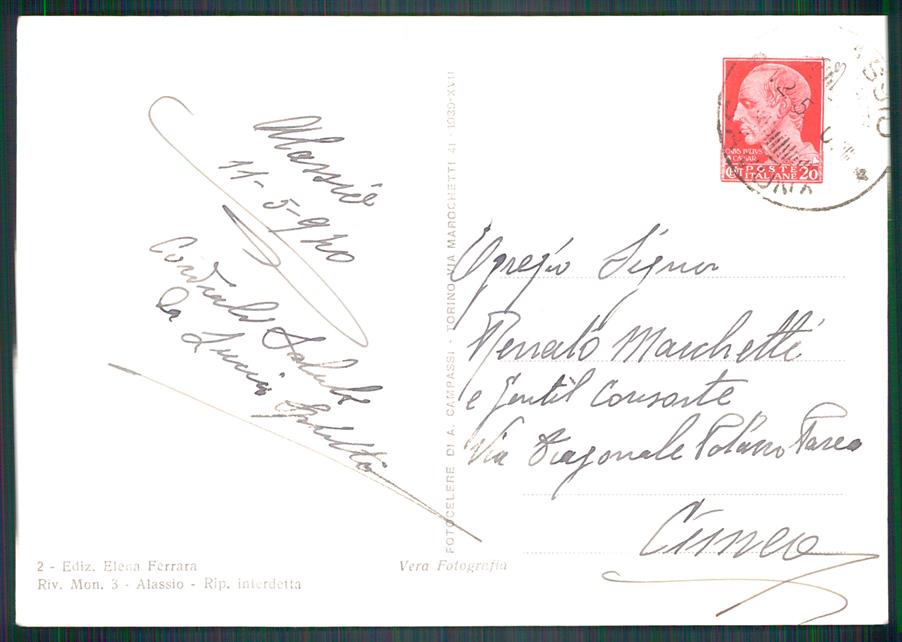 Alassio
11-5-940
Cordiali Saluti
da Lucia
FOTOCELERE DI A. CAMPASSI - TORINO VIA MAROCHETTI 41 - 1939-XVII
POSTE
ITALIANE 20
Egregio Signor
Renato Marchetti
e gentil consorte
Via Diagonale
Cuneo
2 - Ediz. Elena Ferrara
Riv. Mon. 3 - Alassio - Rip. interdetta
Vera Fotografia